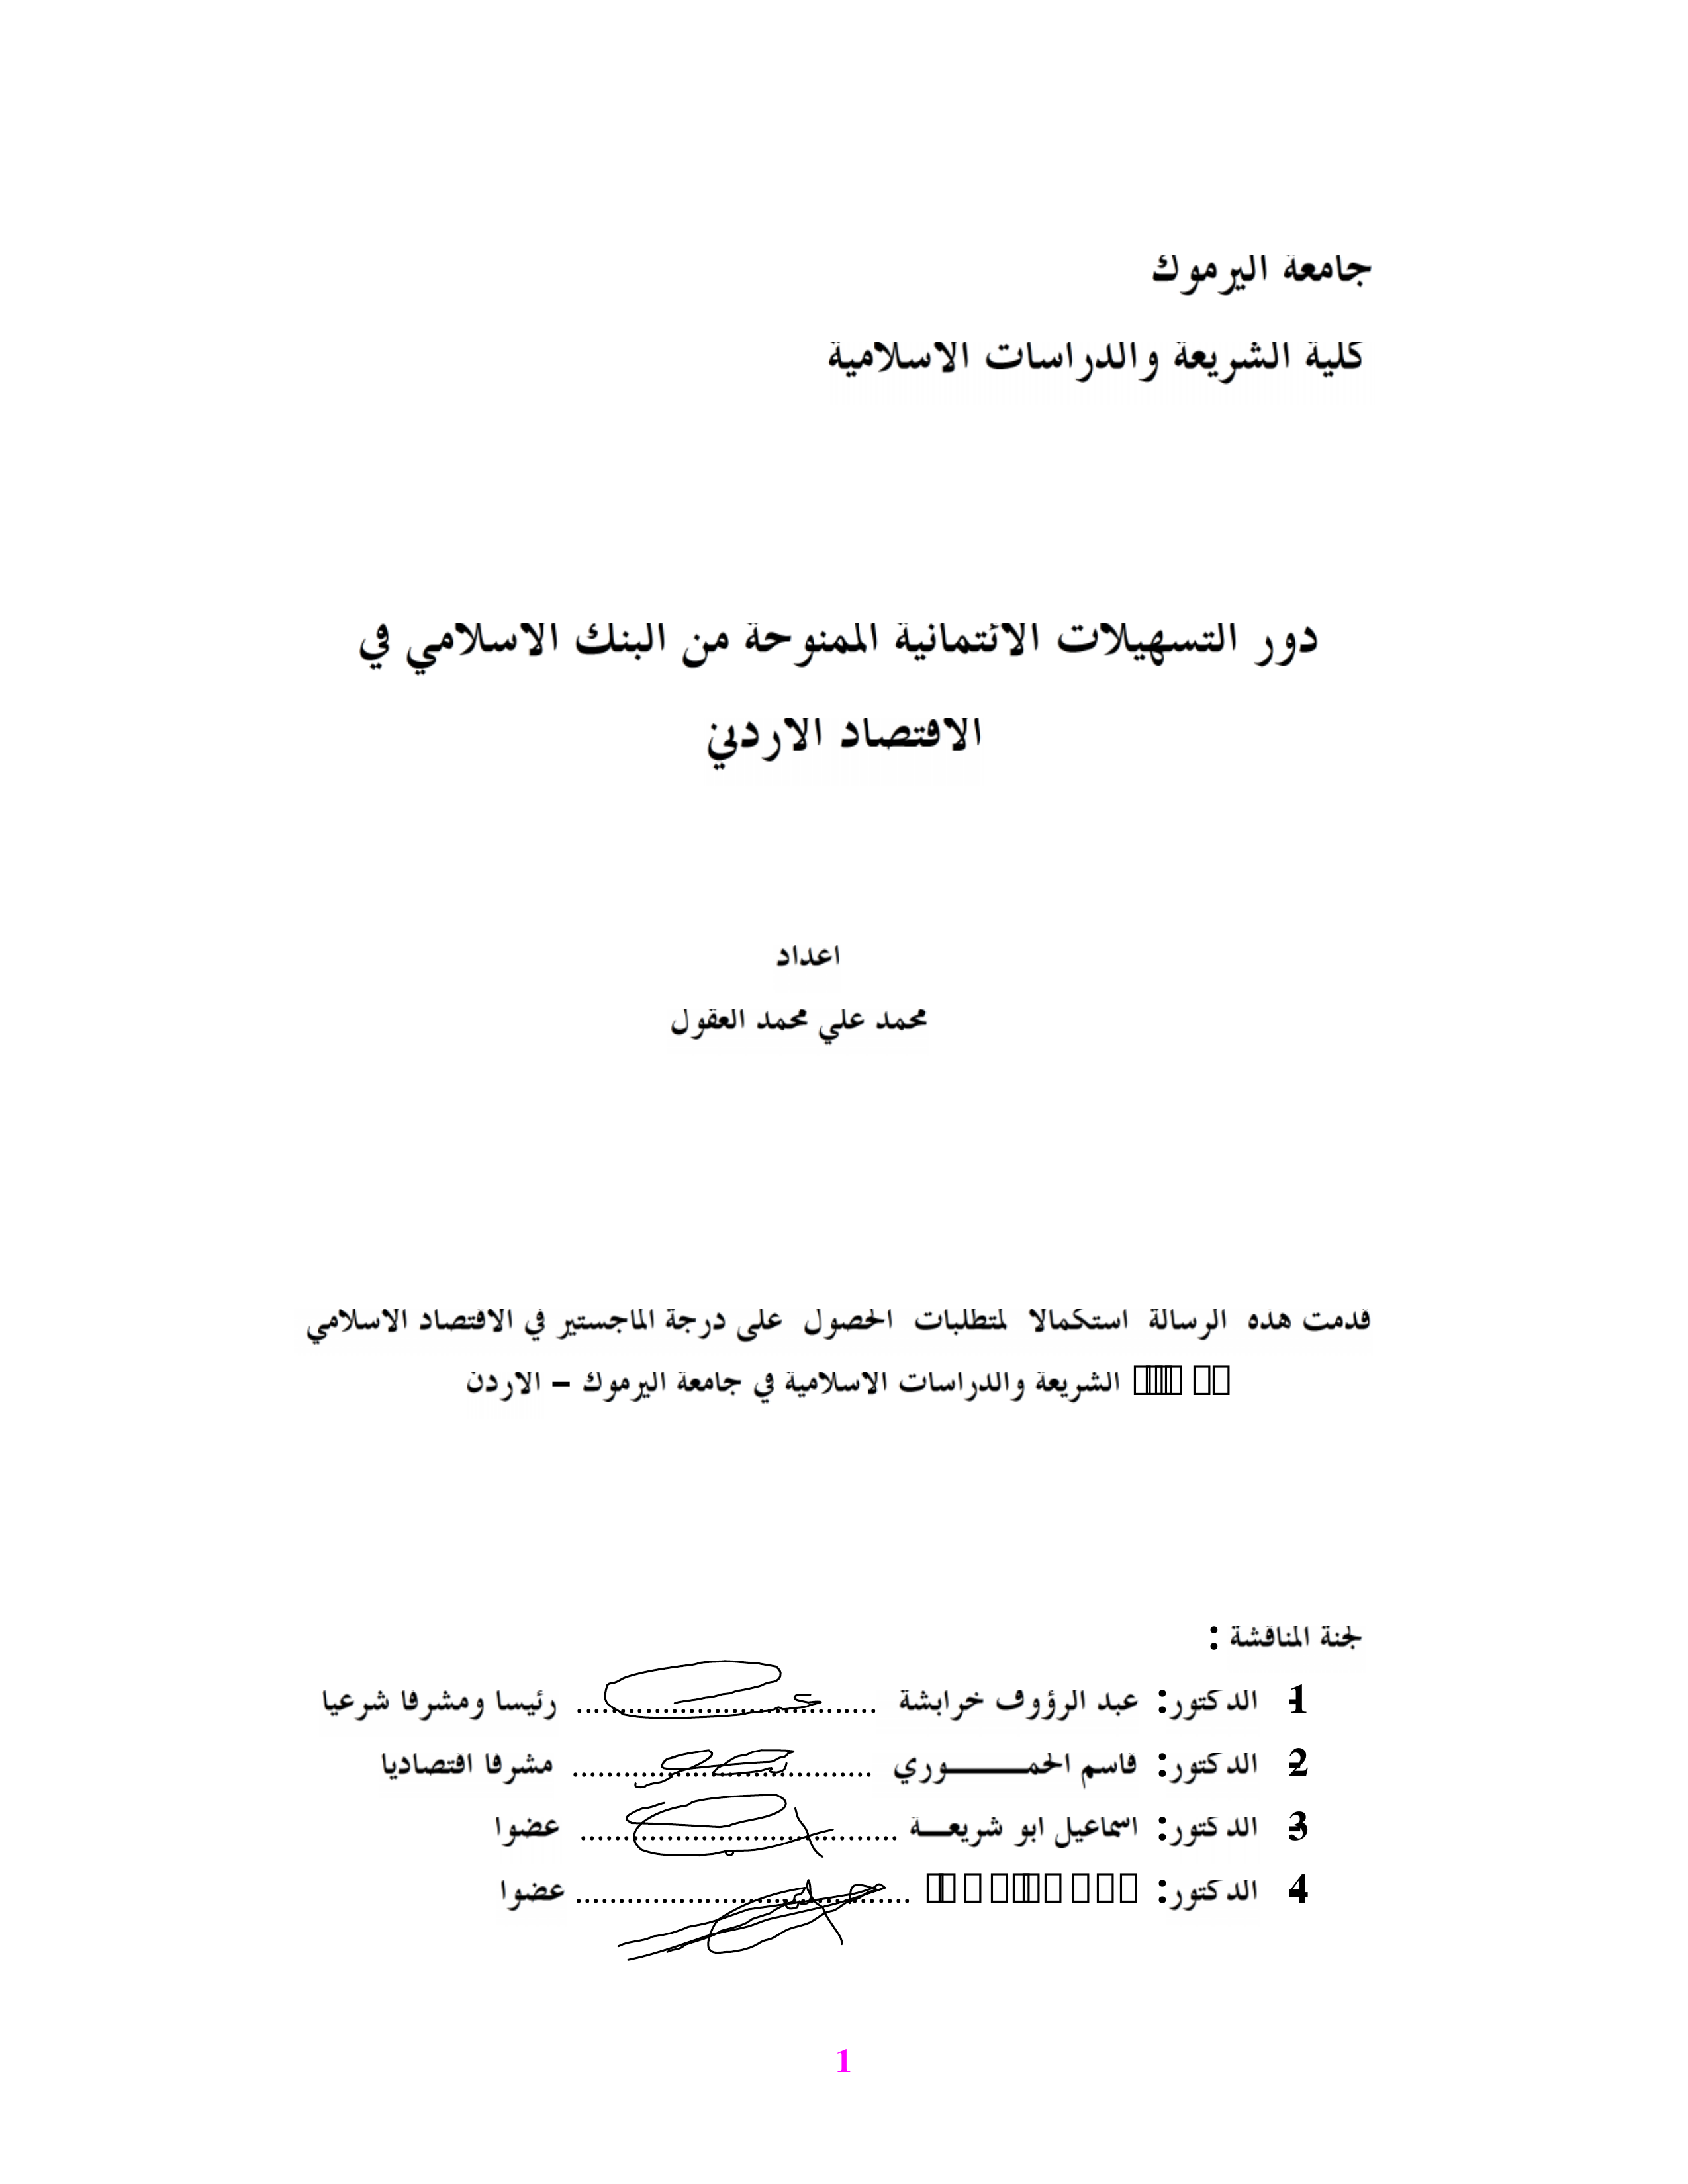 جامعة اليرموك
كلية الشريعة والدراسات الاسلامية
دور التسهيلات الائتمانية الممنوحة من البنك الاسلامي في
الاقتصاد الاردني
اعداد
محمد علي محمد العقول
قدمت هذه الرسالة استكمالا لمتطلبات الحصول على درجة الماجستير في الاقتصاد الاسلامي
الشريعة والدراسات الاسلامية في جامعة اليرموك – الاردن
لجنة المناقشة :
1- الدكتور: عبد الرؤوف خرابشة .................................. رئيسا ومشرفا شرعيا
2- الدكتور: قاسم الحمـــــــوري .................................. مشرفا اقتصاديا
3- الدكتور: اسماعيل ابو شريعـــة .................................... عضوا
4- الدكتور: ...................................... عضوا
1